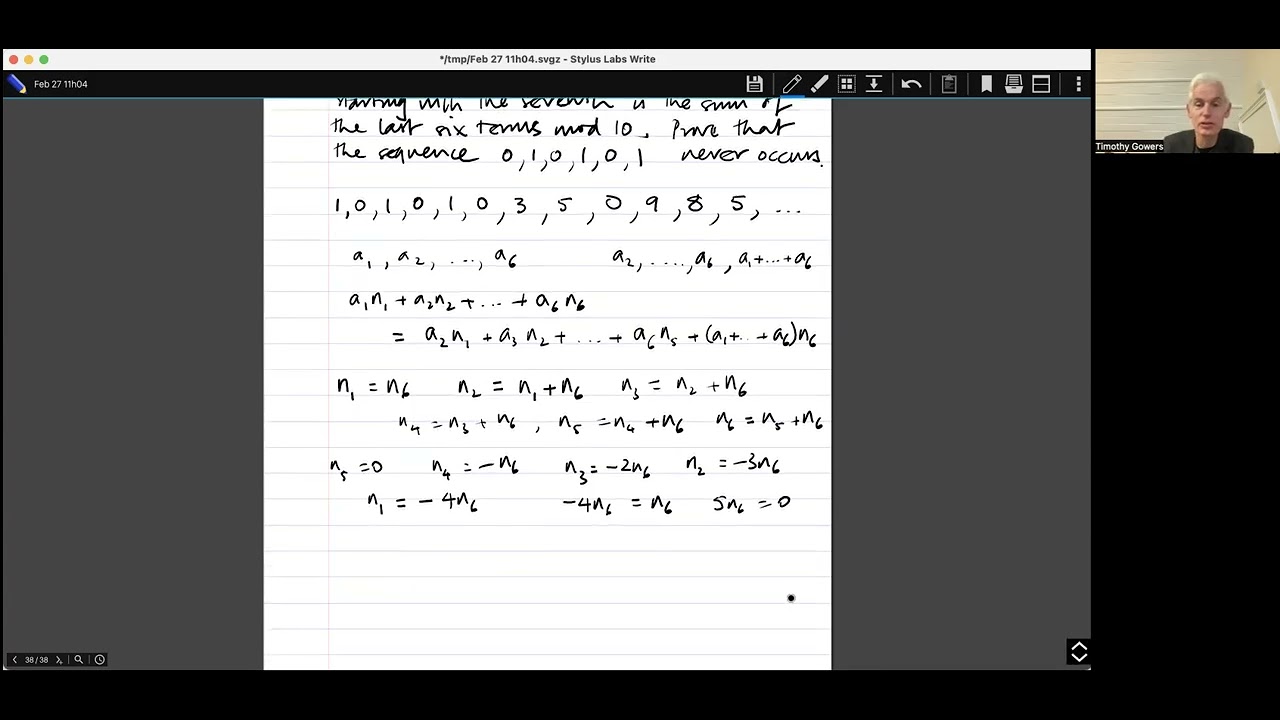 */tmp/Feb 27 11h04.svgz - Stylus Labs Write
Feb 27 11h04
Timothy Gowers
starting with the seventh is the sum of
the last six terms mod 10. Prove that
the sequence 0,1,0,1,0,1 never occurs.
1,0,1,0,1,0,3,5,0,9,8,5,...
a₁,a₂,...,a₆ a₂,....,a₆,a₁+...+a₆
a₁n₁+a₂n₂+...+a₆n₆
= a₂n₁+a₃n₂+...+a₆n₅+(a₁+...+a₆)n₆
n₁=n₆ n₂=n₁+n₆ n₃=n₂+n₆
n₄=n₃+n₆, n₅=n₄+n₆ n₆=n₅+n₆
n₅=0 n₄=-n₆ n₃=-2n₆ n₂=-3n₆
n₁=-4n₆ -4n₆=n₆ 5n₆=0
38/38